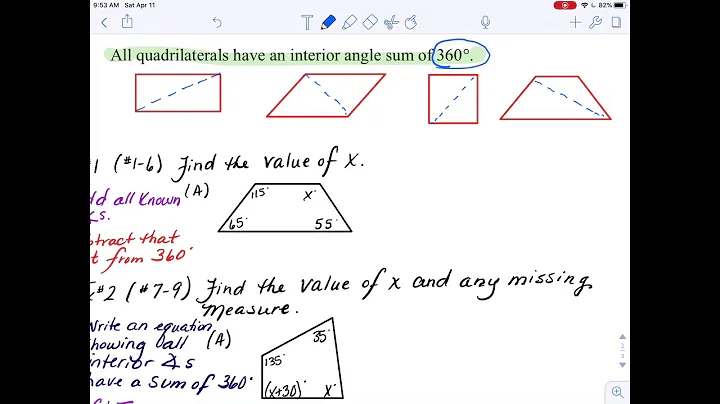 9:53 AM Sat Apr 11
82%
All quadrilaterals have an interior angle sum of 360°.
#1 (#1-6) Find the value of X.
dd all known
∠s.
(A)
115°
X°
65°
55°
btract that
t from 360°
#2 (#7-9) Find the value of x and any missing
measure.
Write an equation
howing all
interior ∡s
have a sum of 360°
(A)
35°
135°
(x+30)°
X°
2
3